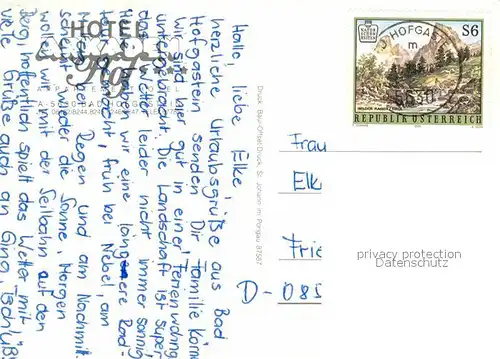 HOTEL
Hof
Hallo, liebe Elke,
herzliche Urlaubsgrüße aus Bad
Hofgastein senden Dir Familie Körn
wir sind hier gut in einer Ferienwohng
untergebracht. Die Landschaft ist super
das Wetter leider nicht immer sonnig
haben wir eine längere Rad-
gemacht, früh bei Nebel, am
bei Regen und am Nachmitt.
scheint wieder die Sonne. Morgen
wollen wir mit der Seilbahn auf den
Berg, hoffentlich spielt das Wetter mit
viele Grüße auch an Gina, Tschüß!
Druck: Baur-Offset-Druck, St. Johann im Pongau 87587
HOFGA
m
S6
REPUBLIK ÖSTERREICH
Frau
Elk
Frie
D-085
privacy protection
Datenschutz